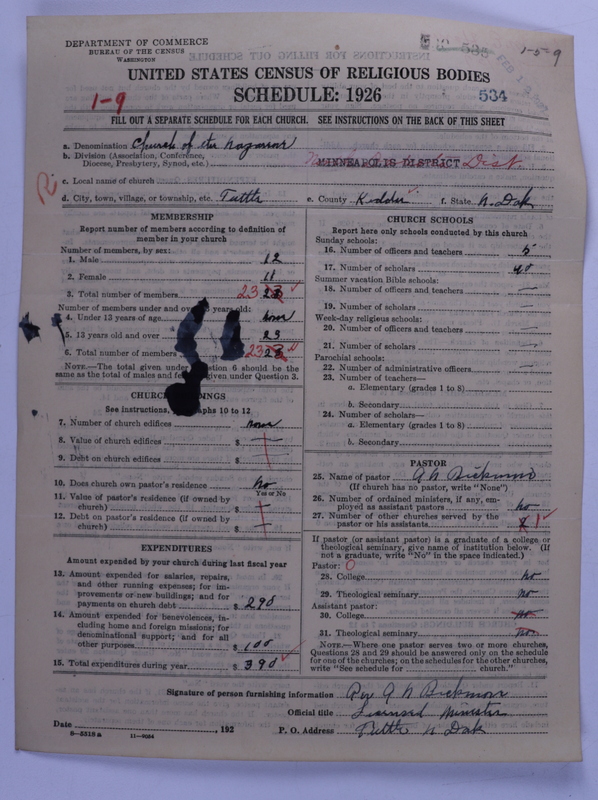 DEPARTMENT OF COMMERCE
BUREAU OF THE CENSUS
WASHINGTON
535
1-5-9
UNITED STATES CENSUS OF RELIGIOUS BODIES
SCHEDULE: 1926
1-9
534
FILL OUT A SEPARATE SCHEDULE FOR EACH CHURCH. SEE INSTRUCTIONS ON THE BACK OF THIS SHEET
a. Denomination Church of the Nazarene
b. Division (Association, Conference, Diocese, Presbytery, Synod, etc.) MINNEAPOLIS DISTRICT Dist.
c. Local name of church
d. City, town, village, or township, etc. Tuttle e. County Kidder f. State N. Dak
MEMBERSHIP
Report number of members according to definition of member in your church
Number of members, by sex:
1. Male 12
2. Female 11
3. Total number of members 23 23
Number of members under and over 13 years old:
4. Under 13 years of age none
5. 13 years old and over 23
6. Total number of members 23 23
NOTE.—The total given under Question 6 should be the same as the total of males and females given under Question 3.
CHURCH BUILDINGS
See instructions, paragraphs 10 to 12
7. Number of church edifices none
8. Value of church edifices $ —
9. Debt on church edifices $ —
10. Does church own pastor's residence No
Yes or No
11. Value of pastor's residence (if owned by church) $ —
12. Debt on pastor's residence (if owned by church) $ —
EXPENDITURES
Amount expended by your church during last fiscal year
13. Amount expended for salaries, repairs, and other running expenses; for improvements or new buildings; and for payments on church debt $ 290
14. Amount expended for benevolences, including home and foreign missions; for denominational support; and for all other purposes $ 100
15. Total expenditures during year $ 390
CHURCH SCHOOLS
Report here only schools conducted by this church
Sunday schools:
16. Number of officers and teachers 5
17. Number of scholars 40
Summer vacation Bible schools:
18. Number of officers and teachers —
19. Number of scholars —
Week-day religious schools:
20. Number of officers and teachers —
21. Number of scholars —
Parochial schools:
22. Number of administrative officers —
23. Number of teachers—
a. Elementary (grades 1 to 8)
b. Secondary
24. Number of scholars—
a. Elementary (grades 1 to 8)
b. Secondary
PASTOR
25. Name of pastor A N Bickmore
(If church has no pastor, write "None")
26. Number of ordained ministers, if any, employed as assistant pastors no
27. Number of other churches served by the pastor or his assistants 1
If pastor (or assistant pastor) is a graduate of a college or theological seminary, give name of institution below. (If not a graduate, write "No" in the space indicated.)
Pastor: 0
28. College no
29. Theological seminary no
Assistant pastor:
30. College no
31. Theological seminary no
NOTE.—Where one pastor serves two or more churches, Questions 28 and 29 should be answered only on the schedule for one of the churches; on the schedules for the other churches, write "See schedule for ........ church."
Signature of person furnishing information Rev A N Bickmore
Official title Licensed Minister
Date , 192 P. O. Address Tuttle N Dak
8—5518a 11—9564